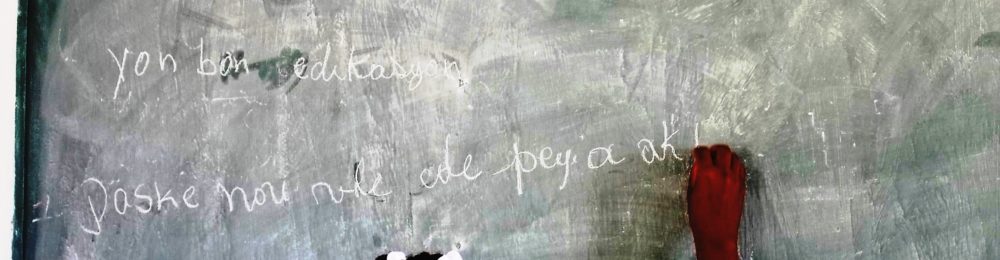 yon bon edikasyon
1. Paske nou vle ede peyi a ak